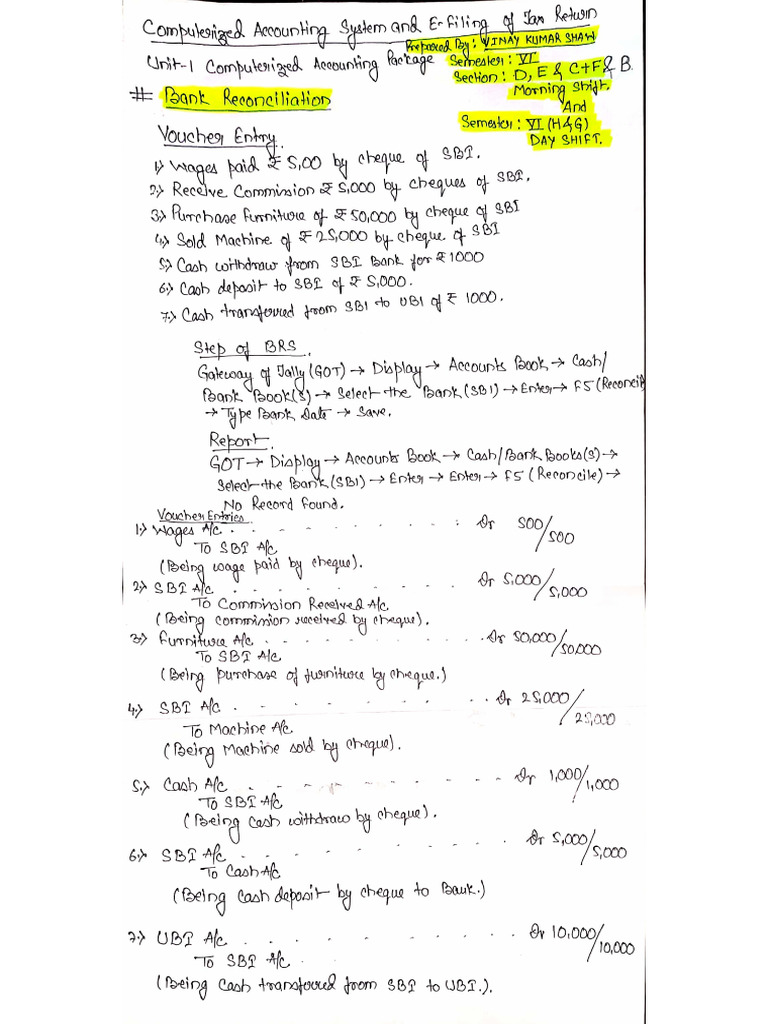 Computerized Accounting System and E-filing of Tax Return
Prepared By: VINAY KUMAR SHAW
Unit-1 Computerized Accounting Package
Semester: VI
Section: D, E & C+F & B.
Morning Shift.
And
Semester: VI (H&G)
DAY SHIFT.
# Bank Reconciliation
Voucher Entry.
1.) Wages paid ₹ 5,00 by cheque of SBI.
2.) Receive Commission ₹ 5,000 by cheques of SBI.
3.) Purchase furniture of ₹ 50,000 by cheque of SBI
4.) Sold Machine of ₹ 25,000 by cheque of SBI
5.) Cash withdraw from SBI Bank for ₹ 1000
6.) Cash deposit to SBI of ₹ 5,000.
7.) Cash transferred from SBI to UBI of ₹ 1000.
Step of BRS.
Gateway of Tally (GOT) → Display → Accounts Book → Cash/
Bank Book(s) → Select the Bank (SBI) → Enter → F5 (Reconcile
→ Type Bank Date → Save.
Report.
GOT → Display → Accounts Book → Cash/Bank Books(s) →
Select the Bank (SBI) → Enter → Enter → F5 (Reconcile) →
No Record found.
Voucher Entries.
1.) Wages A/c. . . . . . . . . . : Dr 500/
To SBI A/c 500
(Being wage paid by cheque).
2.) SBI A/c. . . . . . . . . . . Dr 5,000/
To Commission Received A/c. 5,000
(Being commission received by cheque).
3.) Furniture A/c . . . . . . . . . . . Dr 50,000/
To SBI A/c 50,000
(Being purchase of furniture by cheque.)
4.) SBI A/c . . . . . . . . . . Dr 25,000/
To Machine A/c. 25,000
(Being Machine sold by cheque).
5.) Cash A/c . - - - - . . - - . Dr 1,000/
To SBI A/c 1,000
(Being cash withdraw by cheque).
6.) SBI A/c . . . . . . . . . . . Dr 5,000/
To Cash A/c 5,000
(Being cash deposit by cheque to Bank.)
7.) UBI A/c . . . . . . . . . . Dr 10,000/
To SBI A/c . 10,000
(Being Cash transferred from SBI to UBI.).